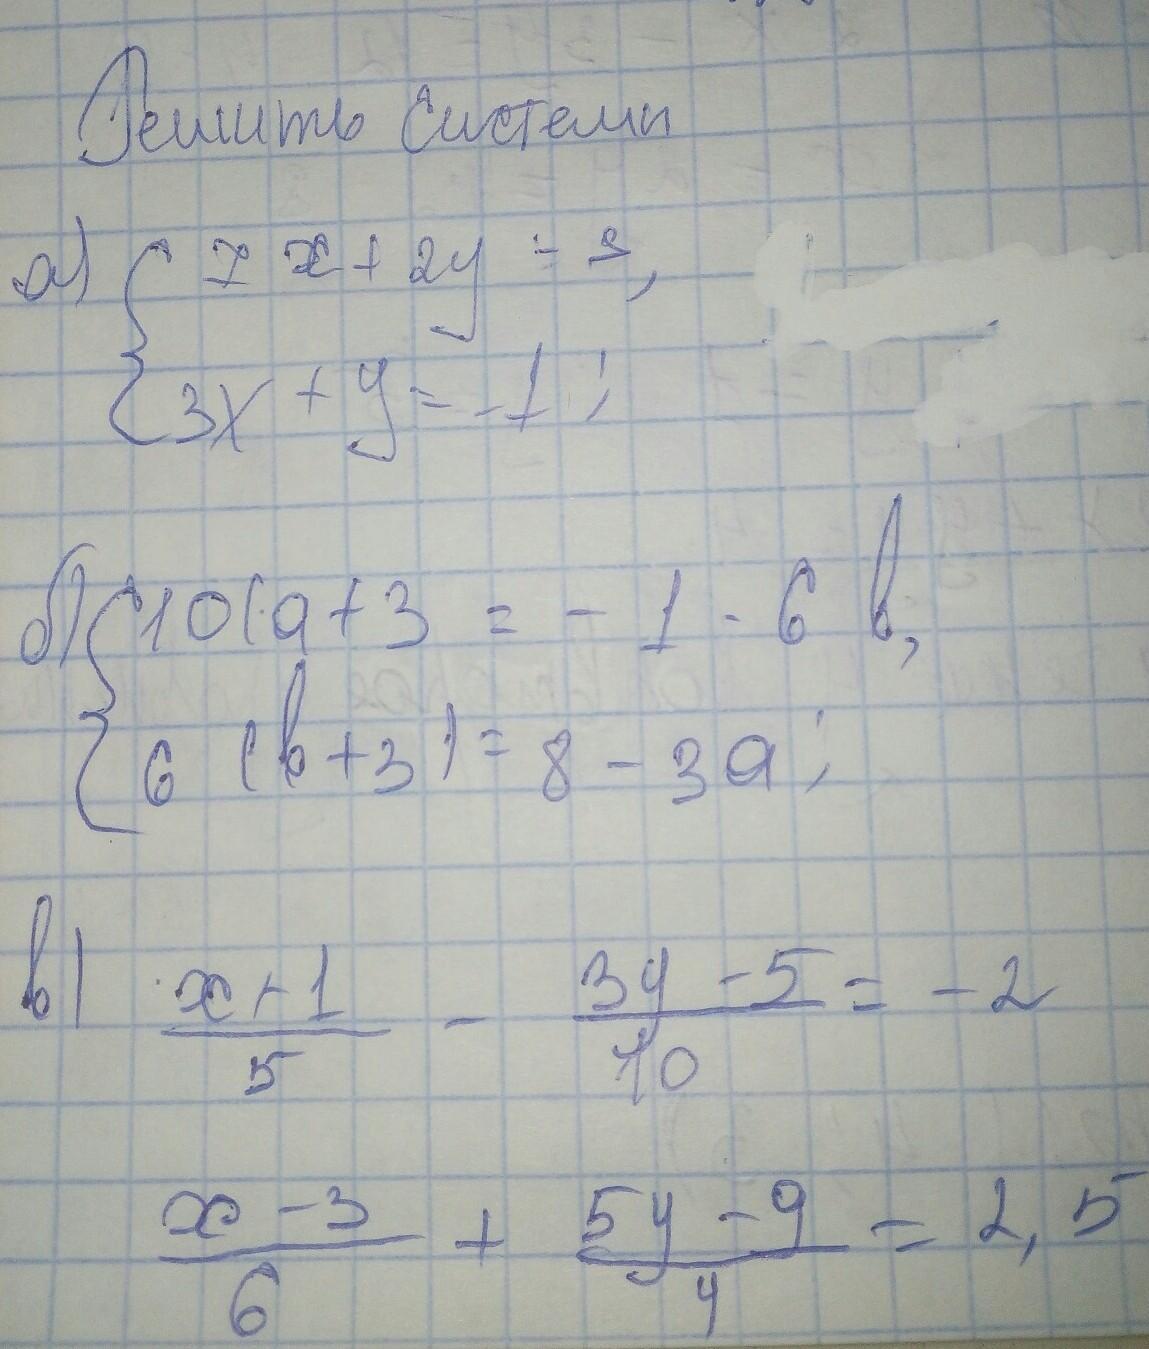 Решить системы
а) { 7x + 2y = 3,
3x + y = -1;
б) { 10(a + 3 = - 1 - 6b,
6 (b + 3) = 8 - 3a;
в) (x + 1)/5 - (3y - 5)/10 = -2
(x - 3)/6 + (5y - 9)/4 = 2,5